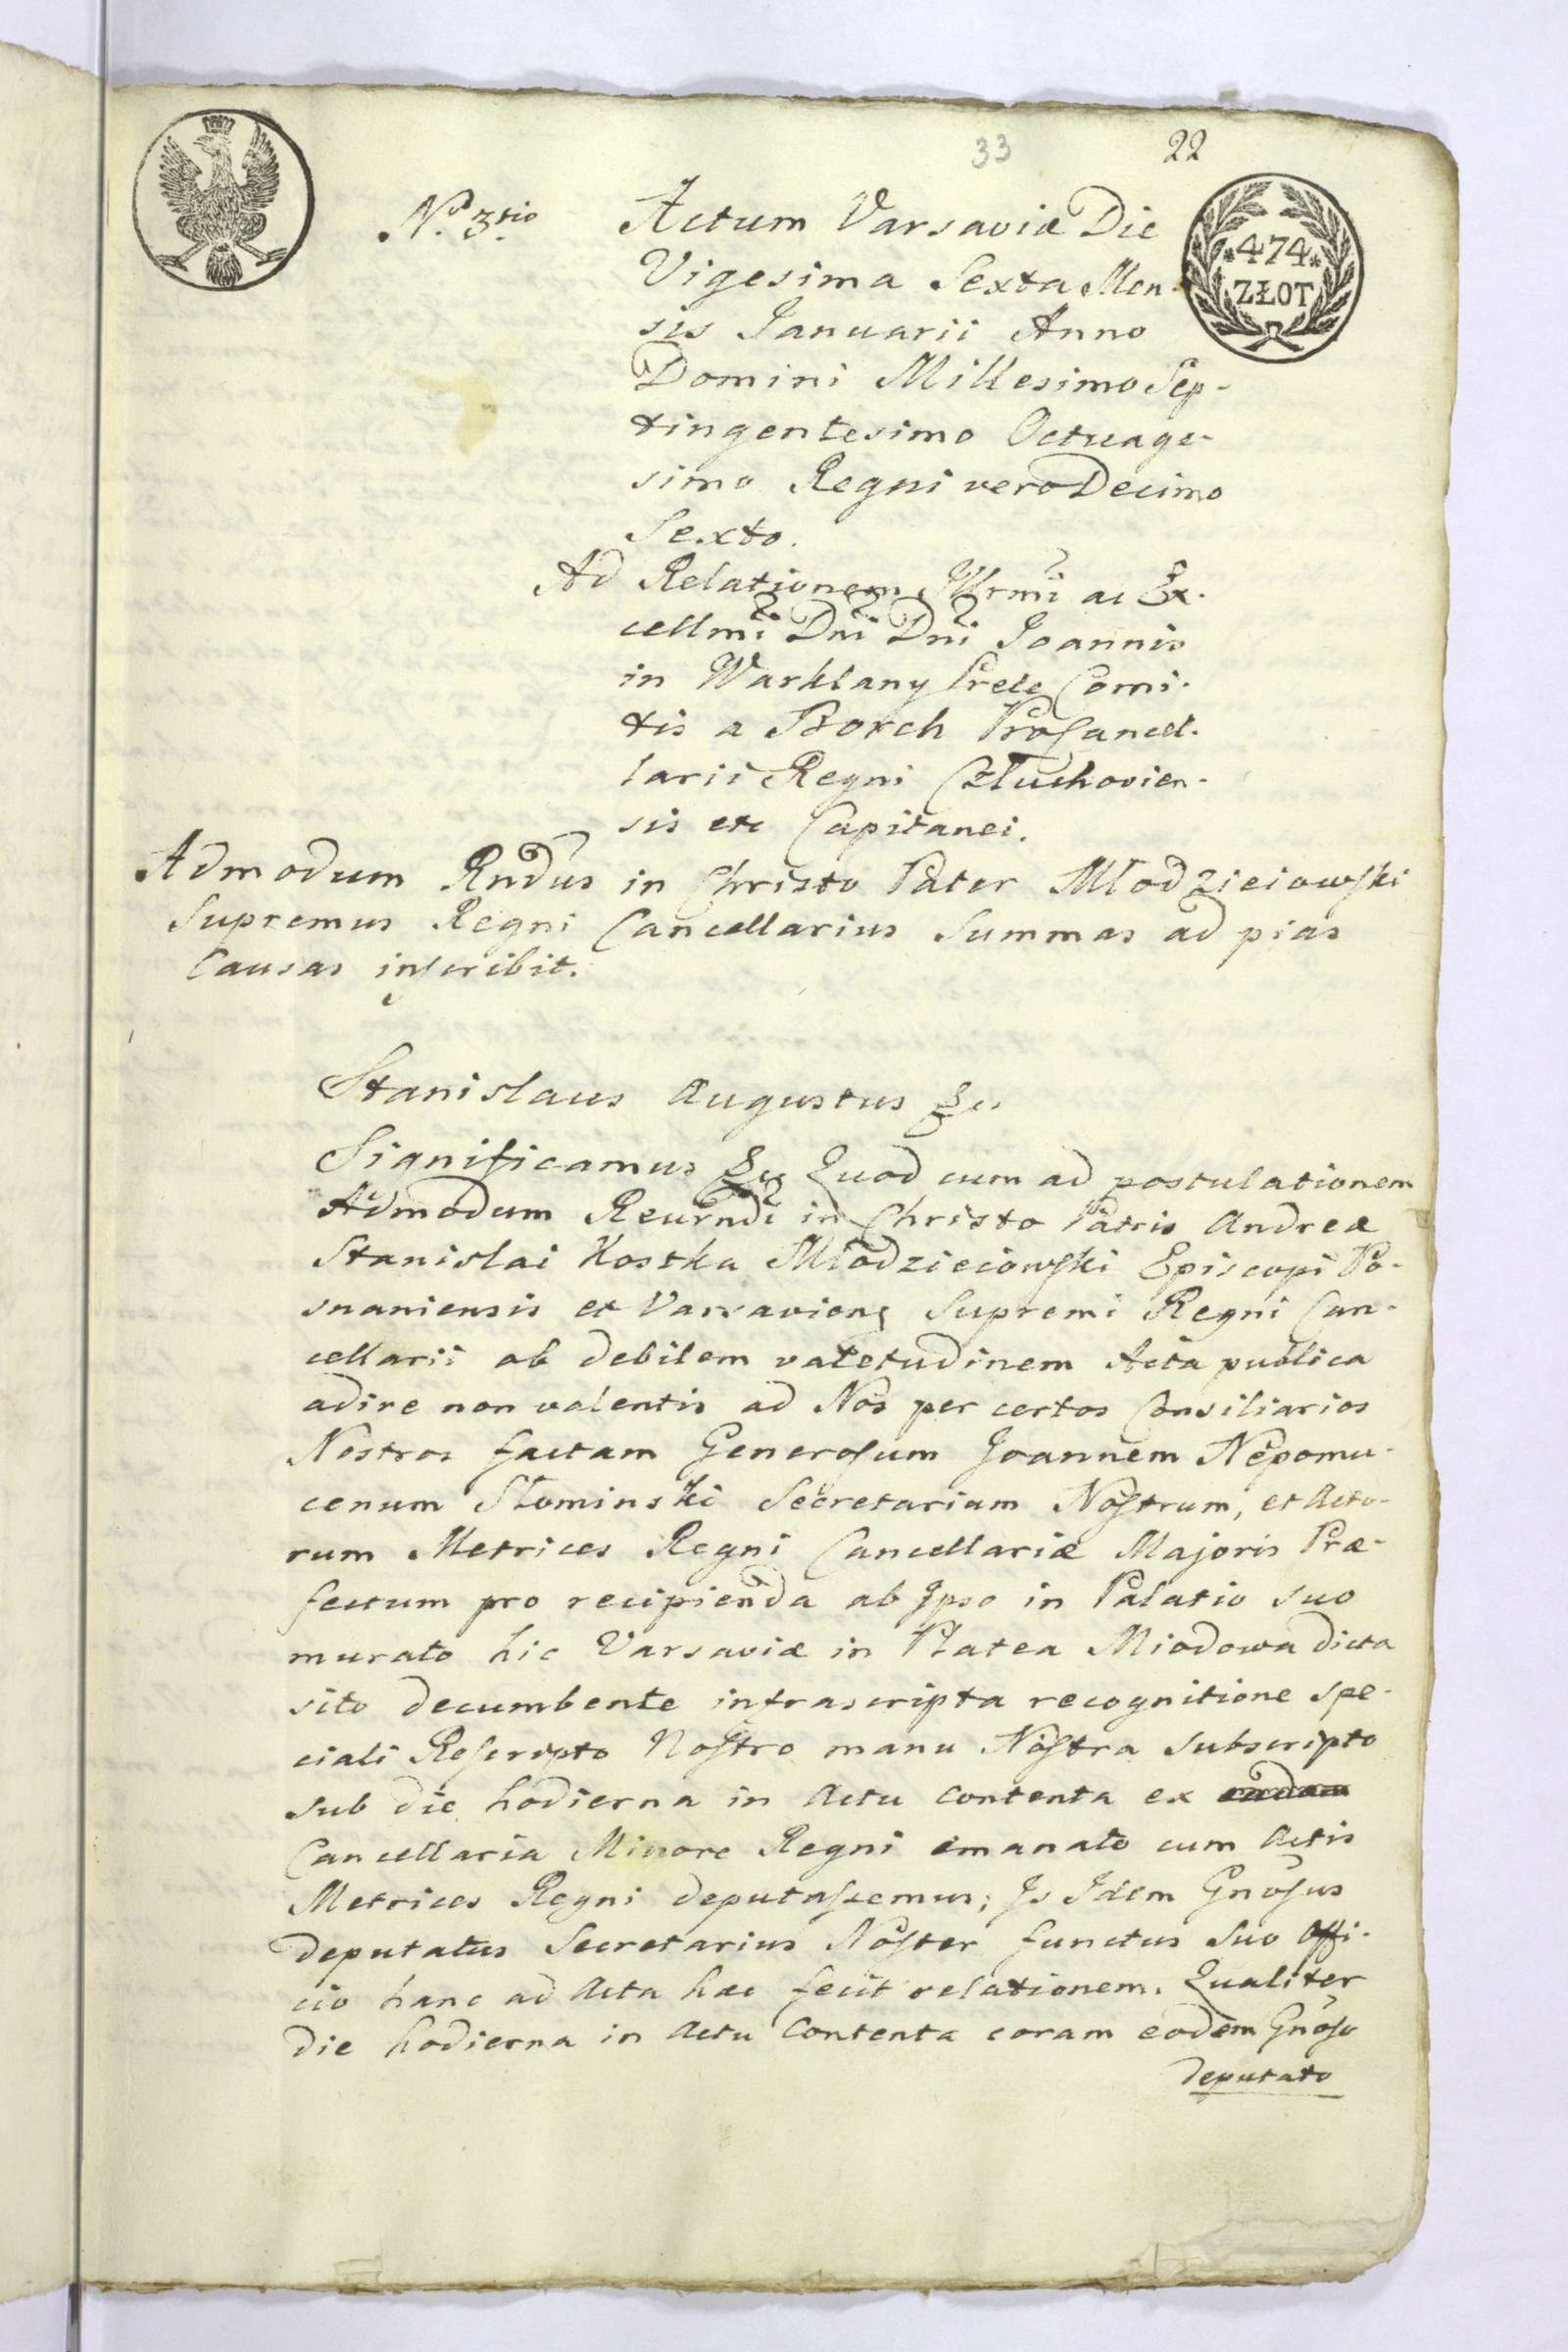 33 22
*474*
ZŁOT
No 3tio
Actum Varsaviæ Die
Vigesima Sexta Men-
sis Januarii Anno
Domini Millesimo Sep-
tingentesimo Octuage-
simo Regni vero Decimo
Sexto.
Ad Relationem Illrmi ac Ex-
cellmi Dni Dni Joannis
in Warklany Prele Comi-
tis a Borch ProCancel-
larii Regni Człuchovien-
sis etc Capitanei.
Admodum Rndus in Christo Pater Młodzieiowski
Supremus Regni Cancellarius Summas ad pias
Causas inscribit.
Stanislaus Augustus &c
Significamus &c Quod cum ad postulationem
Admodum Reurndi in Christo Patris Andreæ
Stanislai Kostka Młodzieiowski Episcopi Po-
snaniensis et Varsaviens Supremi Regni Can-
cellarii ob debilem valetudinem Acta publica
adire non valentis ad Nos per certos Consiliarios
Nostros factam Generosum Joannem Nepomu-
cenum Słominski Secretarium Nostrum, et Acto-
rum Metrices Regni Cancellariæ Majoris Præ-
fectum pro recipienda ab Ipso in Palatio suo
murato hic Varsaviæ in Platea Miodowa dicta
sito decumbente infrascripta recognitione spe-
ciali Rescripto Nostro manu Nostra subscripto
sub die hodierna in Actu contenta ex
Cancellaria Minore Regni emanato cum Actis
Metrices Regni deputassemus; Is Idem Gnosus
deputatus Secretarius Noster functus suo Offi-
cio hanc ad Acta hæc fecit relationem. Qualiter
die hodierna in Actu Contenta coram eodem Gnoso
deputato